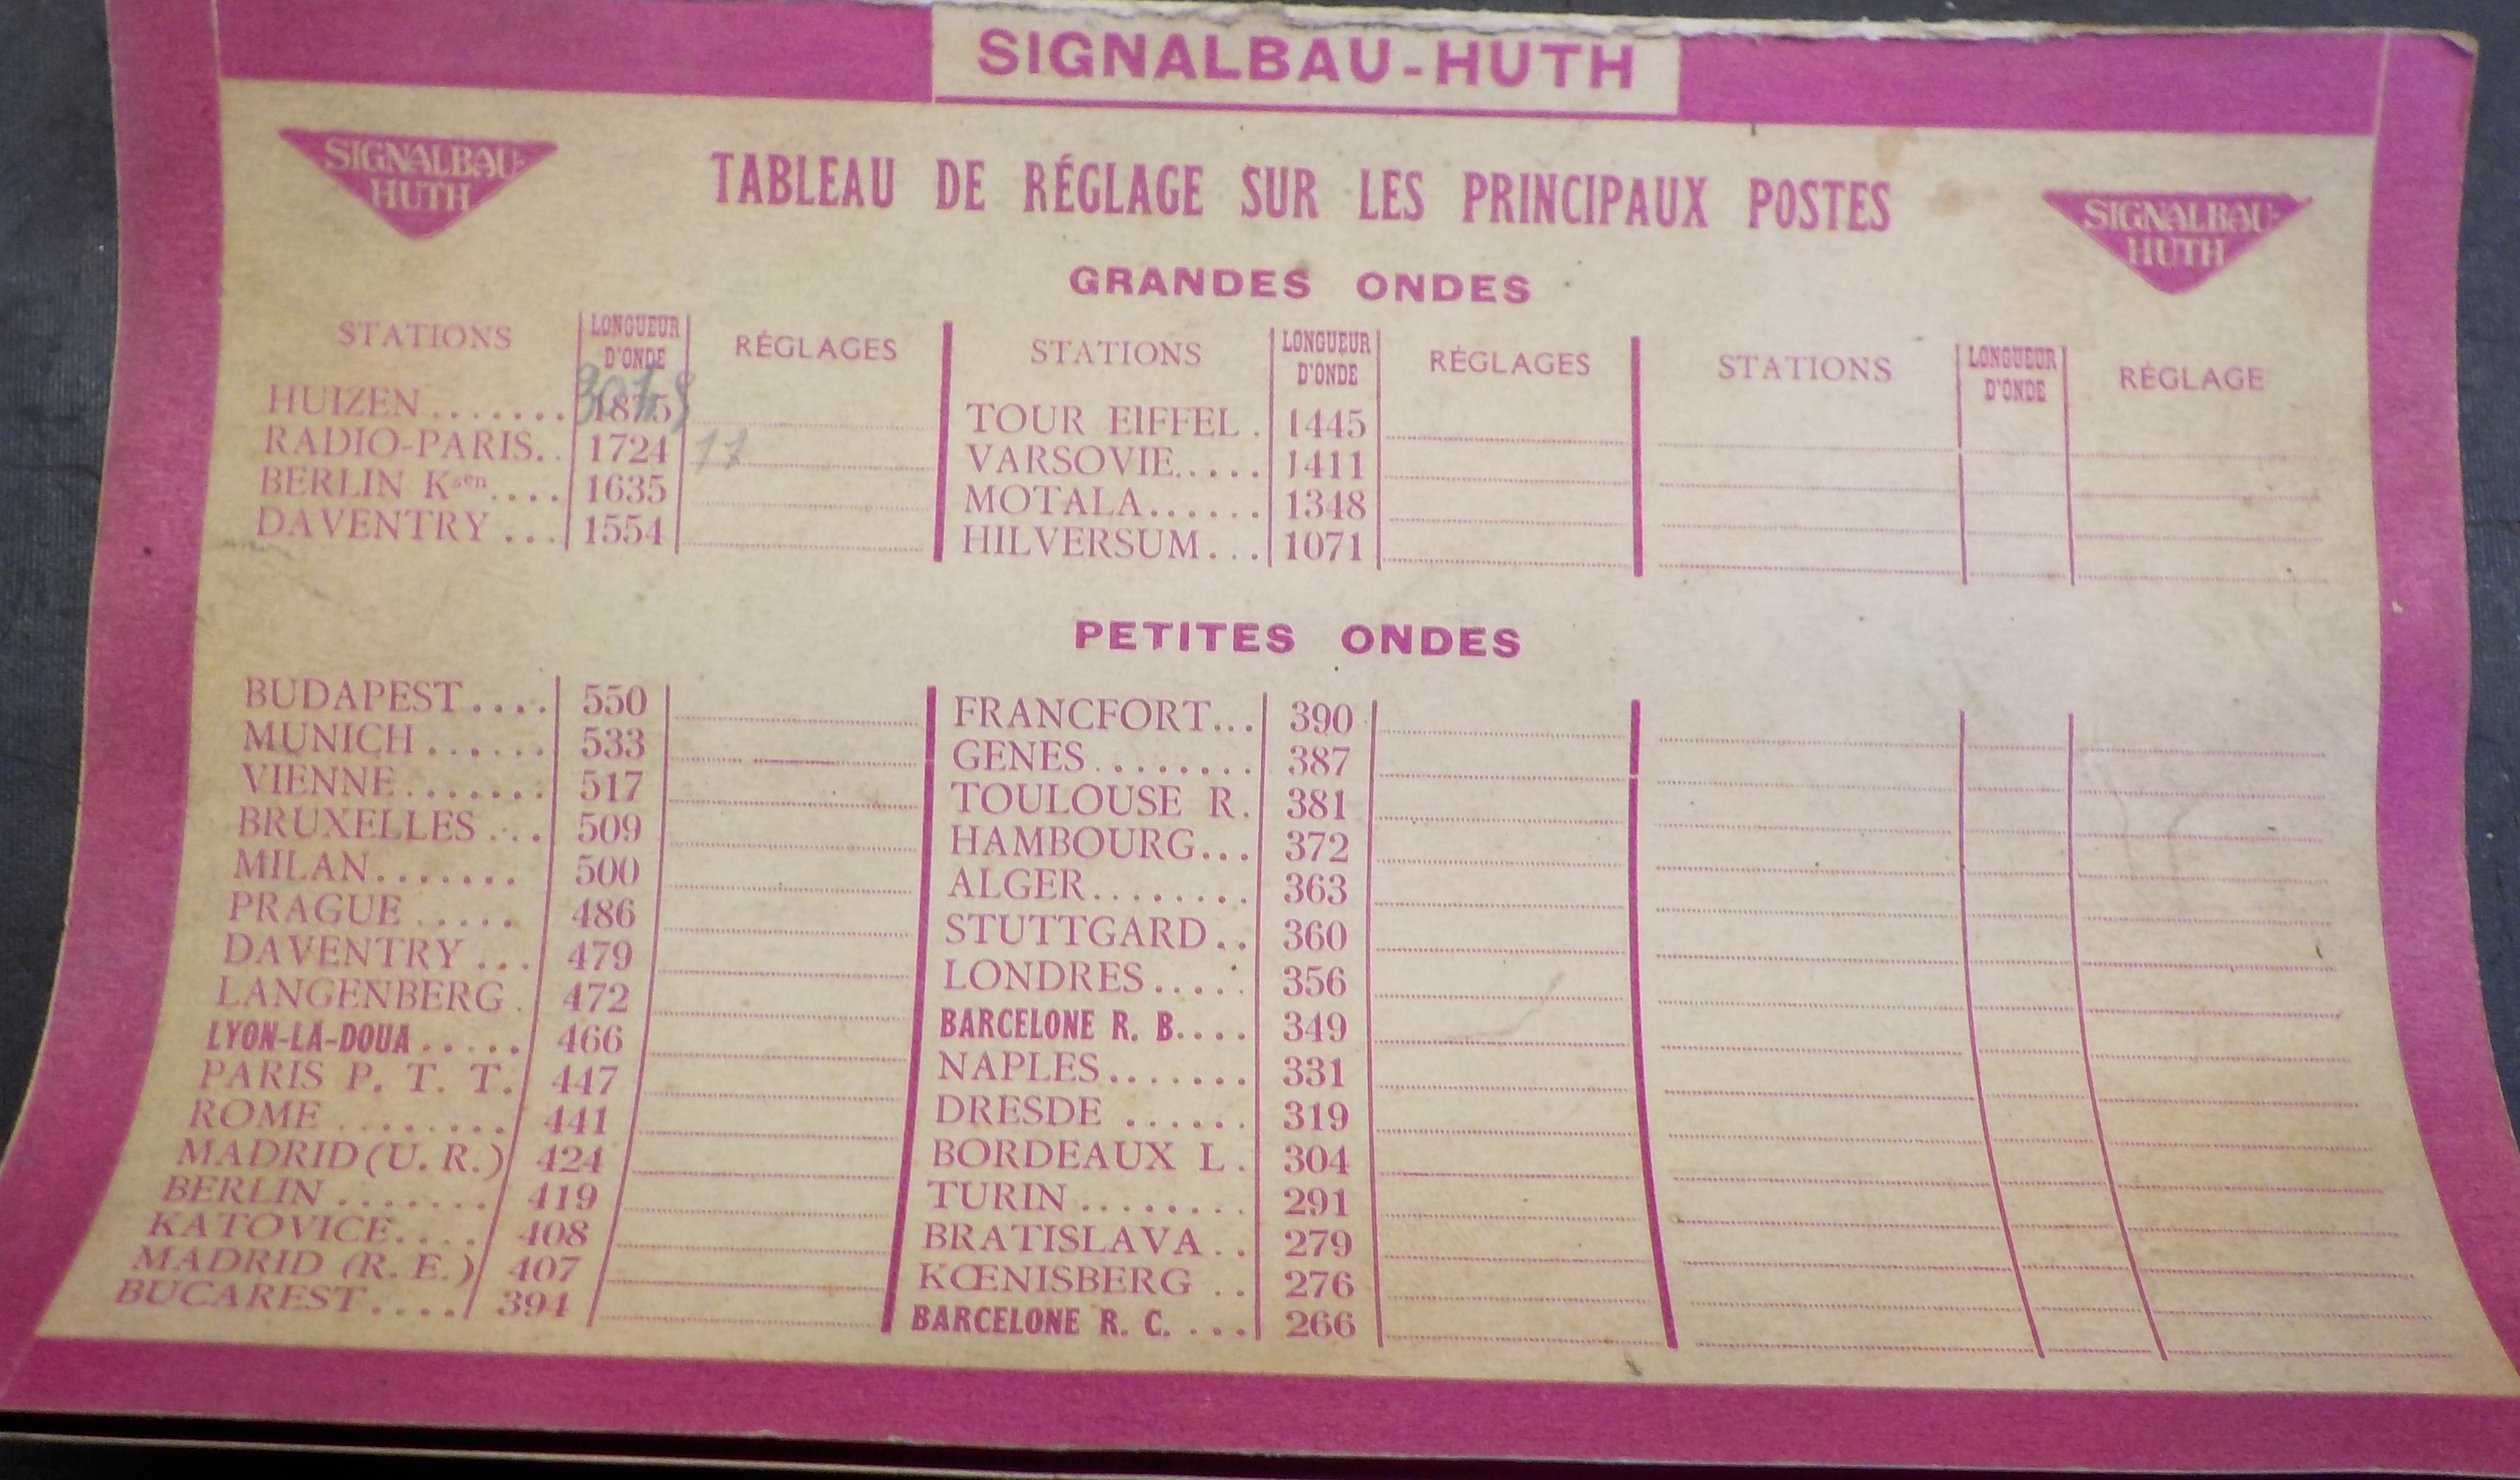 SIGNALBAU-HUTH
SIGNALBAU-
HUTH
TABLEAU DE RÉGLAGE SUR LES PRINCIPAUX POSTES
SIGNALBAU-
HUTH
GRANDES ONDES
STATIONS LONGUEUR D'ONDE RÉGLAGES STATIONS LONGUEUR D'ONDE RÉGLAGES STATIONS LONGUEUR D'ONDE RÉGLAGE
HUIZEN....... 1875 TOUR EIFFEL. 1445
RADIO-PARIS.. 1724 17 VARSOVIE..... 1411
BERLIN Ksen.... 1635 MOTALA...... 1348
DAVENTRY ... 1554 HILVERSUM... 1071
PETITES ONDES
BUDAPEST.... 550 FRANCFORT... 390
MUNICH...... 533 GENES........ 387
VIENNE....... 517 TOULOUSE R. 381
BRUXELLES... 509 HAMBOURG... 372
MILAN....... 500 ALGER........ 363
PRAGUE..... 486 STUTTGARD.. 360
DAVENTRY... 479 LONDRES..... 356
LANGENBERG. 472 BARCELONE R. B.... 349
LYON-LA-DOUA..... 466 NAPLES....... 331
PARIS P. T. T. 447 DRESDE ...... 319
ROME........ 441 BORDEAUX L. 304
MADRID (U. R.) 424 TURIN........ 291
BERLIN....... 419 BRATISLAVA.. 279
KATOVICE.... 408 KŒNISBERG .. 276
MADRID (R. E.) 407 BARCELONE R. C.... 266
BUCAREST.... 394